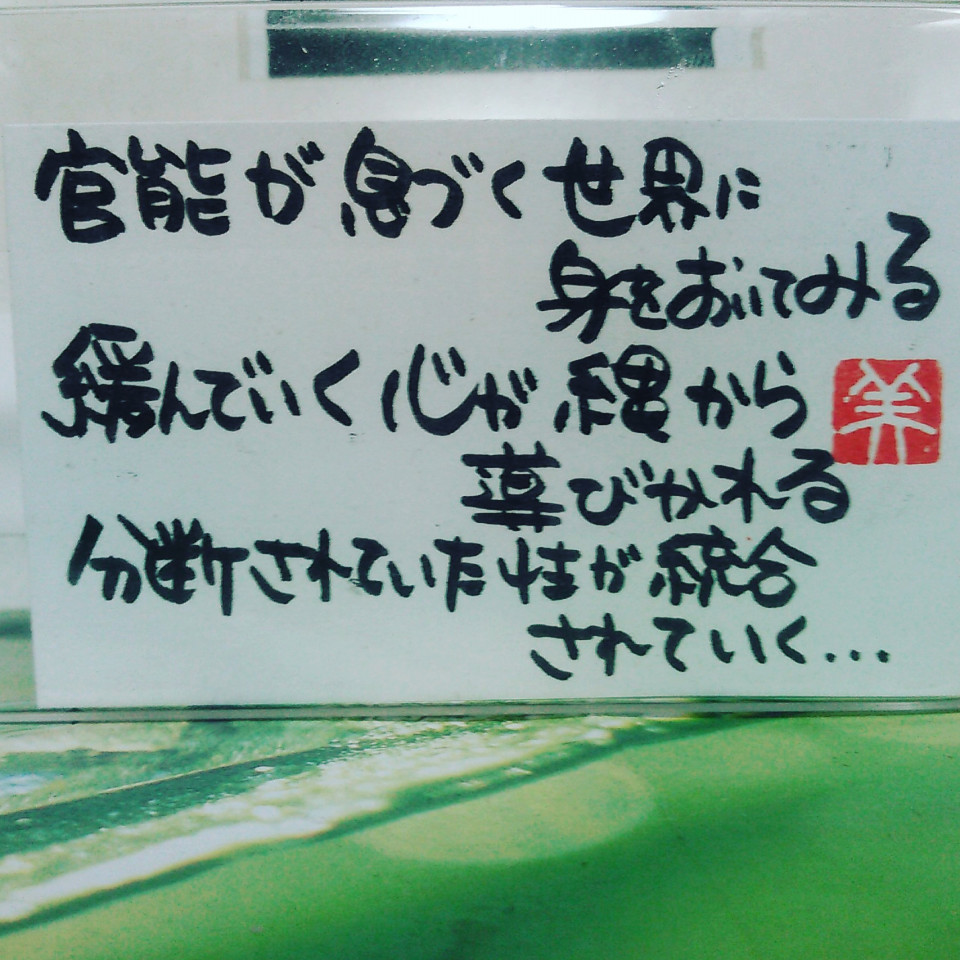 官能が息づく世界に
身をおいてみる
緩んでいく心が縄から
導びかれる
分断されていた性が統合
されていく...